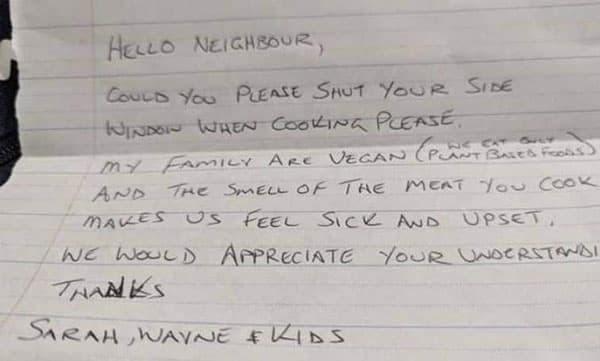 HELLO NEIGHBOUR,
COULD YOU PLEASE SHUT YOUR SIDE
WINDOW WHEN COOKING PLEASE.
WE EAT ONLY
MY FAMILY ARE VEGAN (PLANT BASED FOODS)
AND THE SMELL OF THE MEAT YOU COOK
MAKES US FEEL SICK AND UPSET.
WE WOULD APPRECIATE YOUR UNDERSTANDI
THANKS
SARAH, WAYNE & KIDS